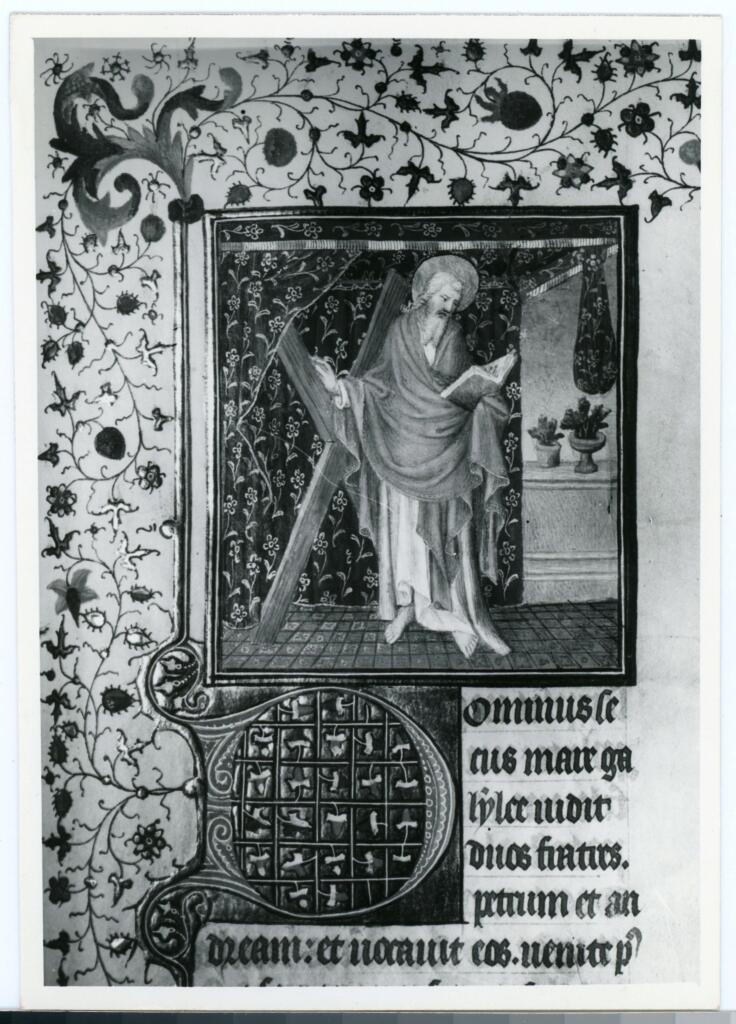 Dominus se
cus mare ga
lylee vidit
duos fratres.
petrum et an
dream: et vocavit eos. venite p